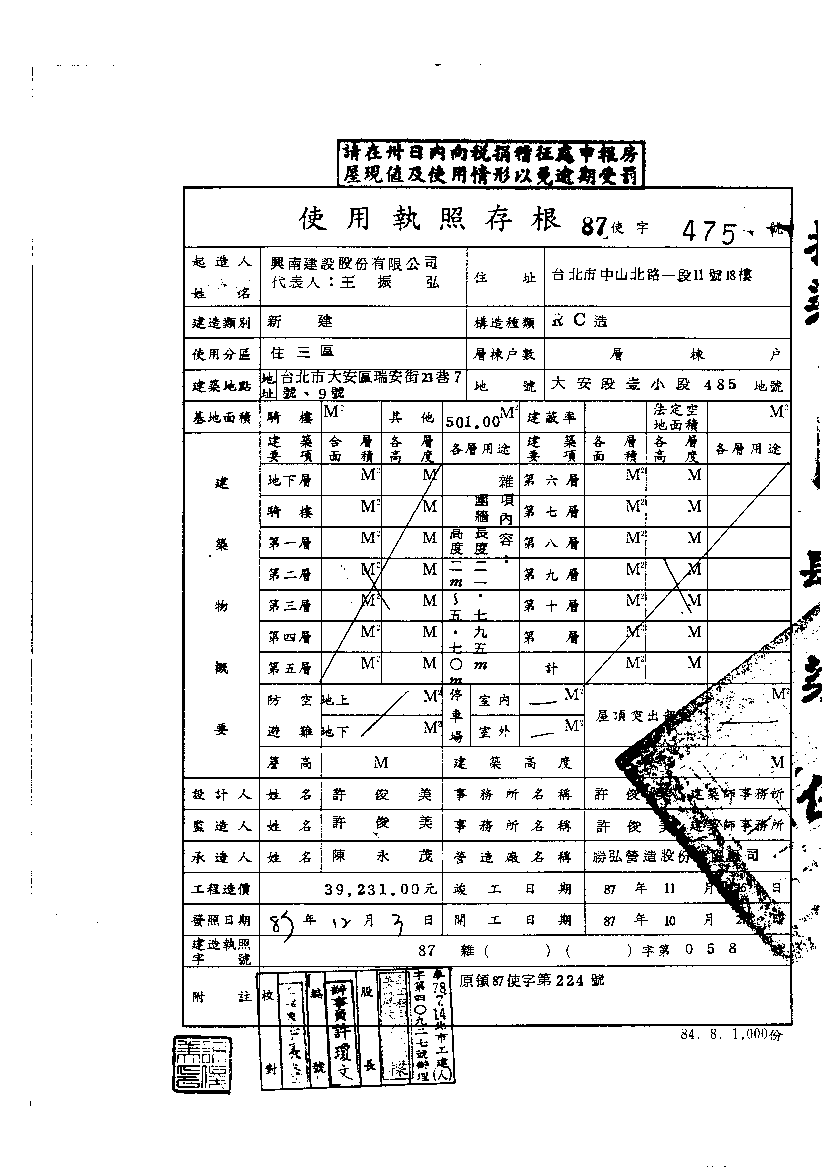 請在卅日內向稅捐稽征處申報房
屋現值及使用情形以免逾期受罰
使用執照存根 87使字 475 號
起造人姓名 興南建設股份有限公司 代表人：王振弘 住址 台北市中山北路一段11號18樓
建造類別 新建 構造種類 RC造
使用分區 住三區 層棟户數 層 棟 户
建築地點 地址 台北市大安區瑞安街23巷7號、9號 地號 大安段壹小段485地號
基地面積 騎樓 M² 其他 501.00M² 建蔽率 法定空地面積 M²
建築物概要
建築要項 各層面積 各層高度 各層用途 建築要項 各層面積 各層高度 各層用途
地下層 M² M 第六層 M² M
騎樓 M² M 第七層 M² M
第一層 M² M 第八層 M² M
第二層 M² M 第九層 M² M
第三層 M² M 第十層 M² M
第四層 M² M 第 層 M² M
第五層 M² M 計 M² M
雜項內容：
圍牆長度二一．七九五m
高度二m～五．七〇m
防空避難 地上 M² 停車場 室內 M² 屋頂突出 M²
地下 M² 室外 M²
簷高 M 建築高度 M
設計人 姓名 許俊美 事務所名稱 許俊美建築師事務所
監造人 姓名 許俊美 事務所名稱 許俊美建築師事務所
承造人 姓名 陳永茂 營造廠名稱 勝弘營造股份有限公司
工程造價 39,231.00元 竣工日期 87年11月 日
發照日期 87年12月3日 開工日期 87年10月 日
建造執照字號 87雜( )( )字第058號
附註 原領87使字第224號
校對 繕號 辦事員許瓊文 股長
78.7.14北市工建(人)
字第四〇九二七號辦理
84.8.1,000份